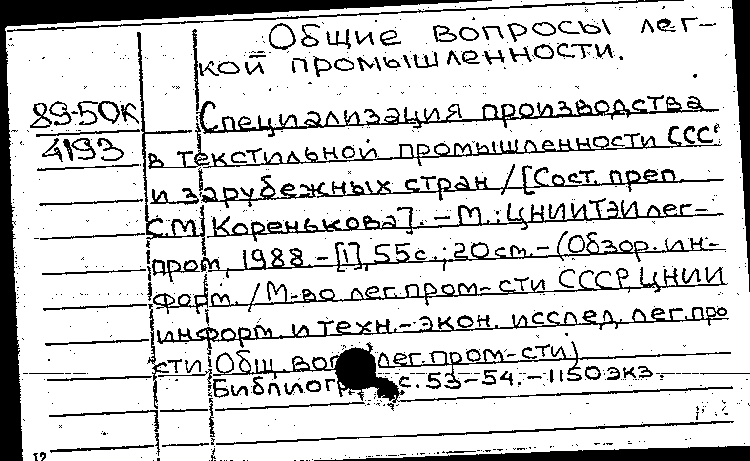 Общие вопросы лег-
кой промышленности.
89-50К Специализация производства
4193 в текстильной промышленности ССС
и зарубежных стран / [Сост. преп.
С.М. Коренькова]. - М.: ЦНИИТЭИлег-
пром, 1988. - [1], 55с.; 20см. - (Обзор. ин-
форм. / М-во лег. пром-сти СССР, ЦНИИ
информ. и техн.-экон. исслед. лег. про
сти. Общ. лег. пром-сти)
Библиогр с. 53-54. - 1150 экз.
12